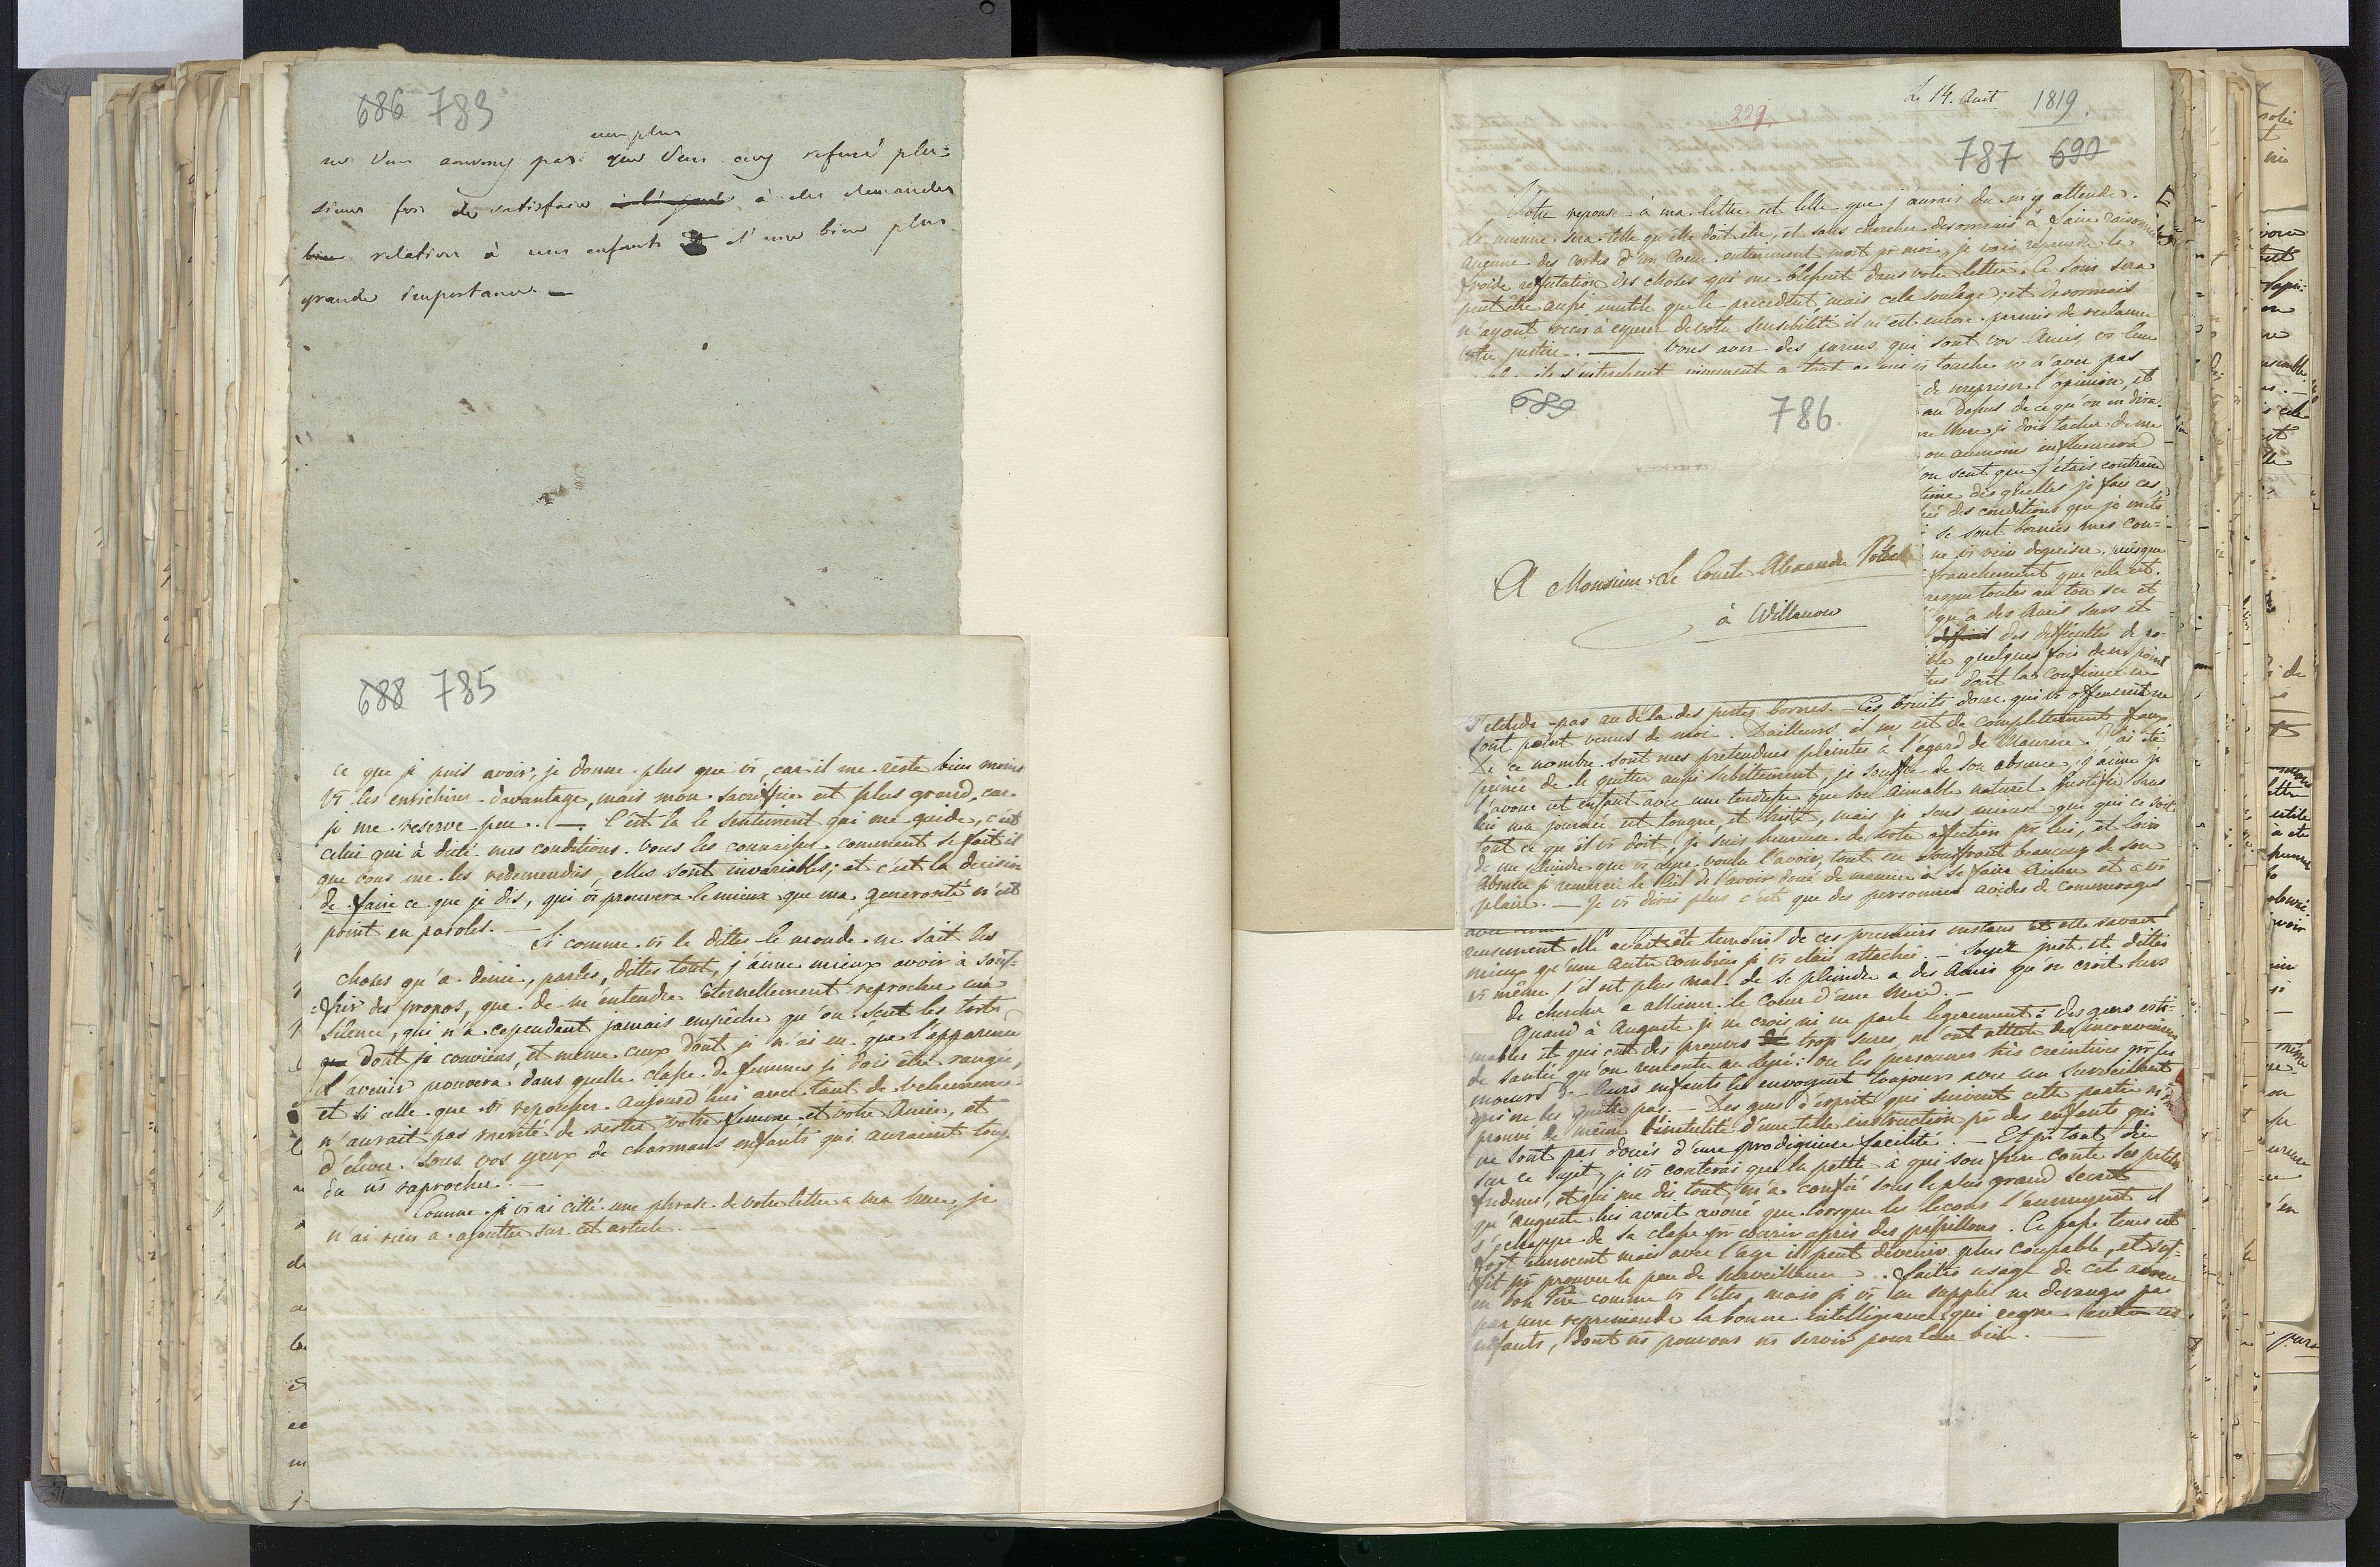 686 783
non plus
ne vous convenez pas que vous avez refusé plu=
sieurs fois de satisfaire à des demandes
relatives à nos enfants et d'une bien plus
grande importance. —
688 785
ce que je puis avoir, je donne plus que vs, car il me reste bien moins
vs les enrichirez davantage, mais mon sacrifice est plus grand, car
je me reserve peu. — C'est la le sentiment qui me guide, c'est
celui qui à dicté mes conditions. Vous les connaissez. comment se fait il
que vous me les redemendiés, elles sont invariables; et c'est la decision
de faire ce que je dis, qui vs prouvera le mieux que ma generosité n'est
point en paroles. —
Si comme vs le dittes le monde ne sait les
choses qu'a demie, parlez, dittes tout, j'aime mieux avoir à souf=
=frir des propos, que de m'entendre éternellement reprocher un
silence, qui n'a cependant jamais empêché qu'on scut les torts
dont je conviens, et même ceux dont je n'ai eu que l'apparence
L'avenir prouvera dans quelle classe de femmes je dois être rangée,
et si celle que vs repoussez aujourd'hui avec tant de vehemence
n'aurait pas merité de rester votre femme et votre Amie, et
d'élever sous vos yeux de charmants enfants qui auraient toujs
du ns raprocher. —
Comme je vs ai cité une phrase de votre lettre a ma mere, je
n'ai rien a ajoutter sur cet article. —
Le 14. Aout 1819
229.
787 690
Votre reponse à ma lettre est telle que j'aurais du m'y attendre.
La mienne sera telle qu'elle doit etre, et sans chercher desormais à faire raisonner
aucune des cordes d'un Coeur entierement mort pr moi, je vais reprendre la
froide refutation des choses qui me blessent dans votre lettre. Ce soin sera
peut être aussi inutile que le precedent, mais cela soulage; et desormais
n'ayant rien à esperer de votre sensibilité il m'est encore permis de reclamer
votre justice. — Vous avez des parens qui sont vos Amis, vs leur
ils s'interessent vivement a tout ce qui vs touche vs n'avez pas
de mepriser l'opinion, et
au dessus de ce qu'on en dira.
mere je dois tacher de me
ou aumoins influencera
on sent que j'etais contrainte
time desquelles je fais cas,
des conditions que je mets
se sont bornées mes con=
ne vs rien deguiser, puisque
franchement que cela est.
presque toutes au ton sec et
qu'a des Amis surs et
des difficultés de po=
quelques fois deux points
dont la confiance ne
689
786
A Monsieur Le Comte Alexandre Potocki
à Willanow
s'etende pas au déla des justes bornes. — Ces bruits donc qui vs offensent ne
sont point venus de moi. D'ailleurs il en est de complettement faux.
De ce nombre sont mes pretendues plaintes à l'égard de Maurice. J'ai été
peinée de le quitter aussi subitement, je souffre de son absence, j'aime je
l'avoue cet enfant avec une tendresse que son aimable naturel justifie sans
lui ma journée est longue, et triste, mais je sens mieux que qui ce soit
tout ce qu'il vs doit, je suis heureuse de votre affection pr lui, et loin
de me plaindre que vs ayez voulu l'avoir, tout en souffrant beaucoup de son
absence je remercie le Ciel de l'avoir doué de maniere a se faire Aimer et a vs
plaire. — Je vs dirai plus c'est que des personnes avides de commerages
reusement elle avait été temoins de ces premiers instans et elle savait
mieux qu'une autre combien je vs étais attachée. — Soyez juste et dittes
vs même, s'il est plus mal de se plaindre a des Amis qu'on croit surs
de chercher a alliener le Coeur d'une Mere. —
Quand à Auguste je ne crois ni ne parle legerement à des gens esti=
mables et qui ont des preuves trop sures, m'ont attesté des inconveniens
de santé qu'on rencontre au Lycée: ou les personnes très craintives pr les
moeurs de leurs enfants les envoyent toujours avec un surveillant
qui ne les quitte pas. — Des gens d'esprit qui suivent cette partie m'ont
prouvé de même l'inutilité d'une telle instruction pr des enfants qui
ne sont pas doués d'une prodigieuse facilité. — Et pr tout dire
sur ce sujet, je vs conterai que la petite à qui son frere conte ses petites
fredenes, et qui me dis tout, m'a confié sous le plus grand secret
qu'Auguste lui avait avoué que lorsque les leçons l'ennuyent il
s'echappe de sa classe pr courir après des papillons. Ce passe tems est
fort innocent mais avec l'age il peut devenir plus coupable, et suf=
fit pr prouver le peu de surveillance. faites usage de cet aveu
en bon Pere comme vs l'etes, mais je vs en supplie ne derangez pas
par une reprimande la bonne intelligence qui regne entre ces
enfants, dont ns pouvons ns servir pour leur bien. —